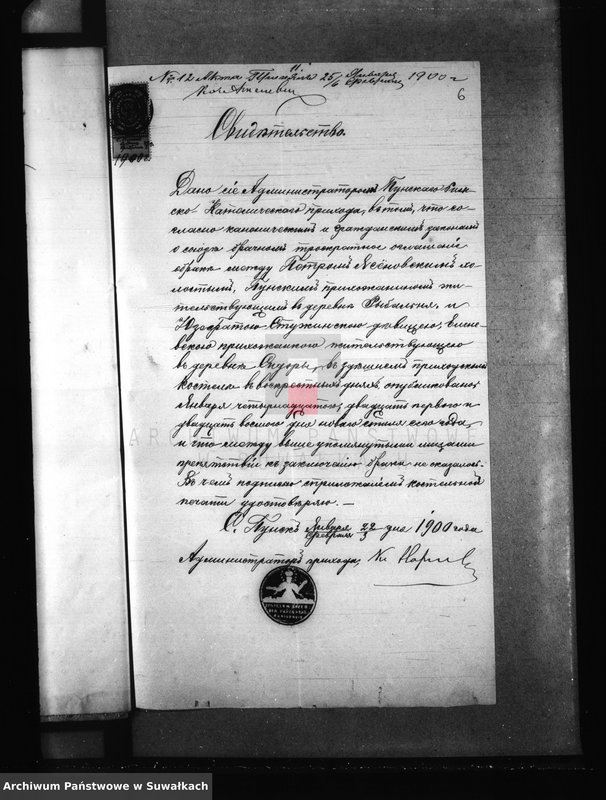 № 12 Акта 11 25/6 Января/Февраля 1900 г
6
1900 г.
Свидѣтельство.
Дано сіе Администраторомъ Пунскаго Римско-
Католическаго прихода, въ томъ, что со-
гласно каноническимъ и гражданскимъ законамъ
о союзѣ брачномъ троекратное оглашеніе
брака между Петромъ Ясёновскимъ хо-
лостымъ, Пунскимъ прихожаниномъ жи-
тельствующимъ въ деревнѣ Рыбальня, и
Юзефатою Стужинскою дѣвицею,
прихожанкою жительствующею
въ деревнѣ Сидоры, въ здѣшнемъ приходскомъ
костелѣ въ воскресные дни опубликовано:
Января четырнадцатого, двадцать перваго и
двадцать восьмого дня новаго стиля сего года,
и что между выше упомянутыми лицами
препятствій къ заключенію брака не оказалось.
Въ чемъ подписью съ приложеніемъ костельной
печати удостовѣряю. —
С. Пунскъ Января/Февраля 22/3 дня 1900 года
Администраторъ прихода, Кс.
Archiwum Państwowe w Suwałkach